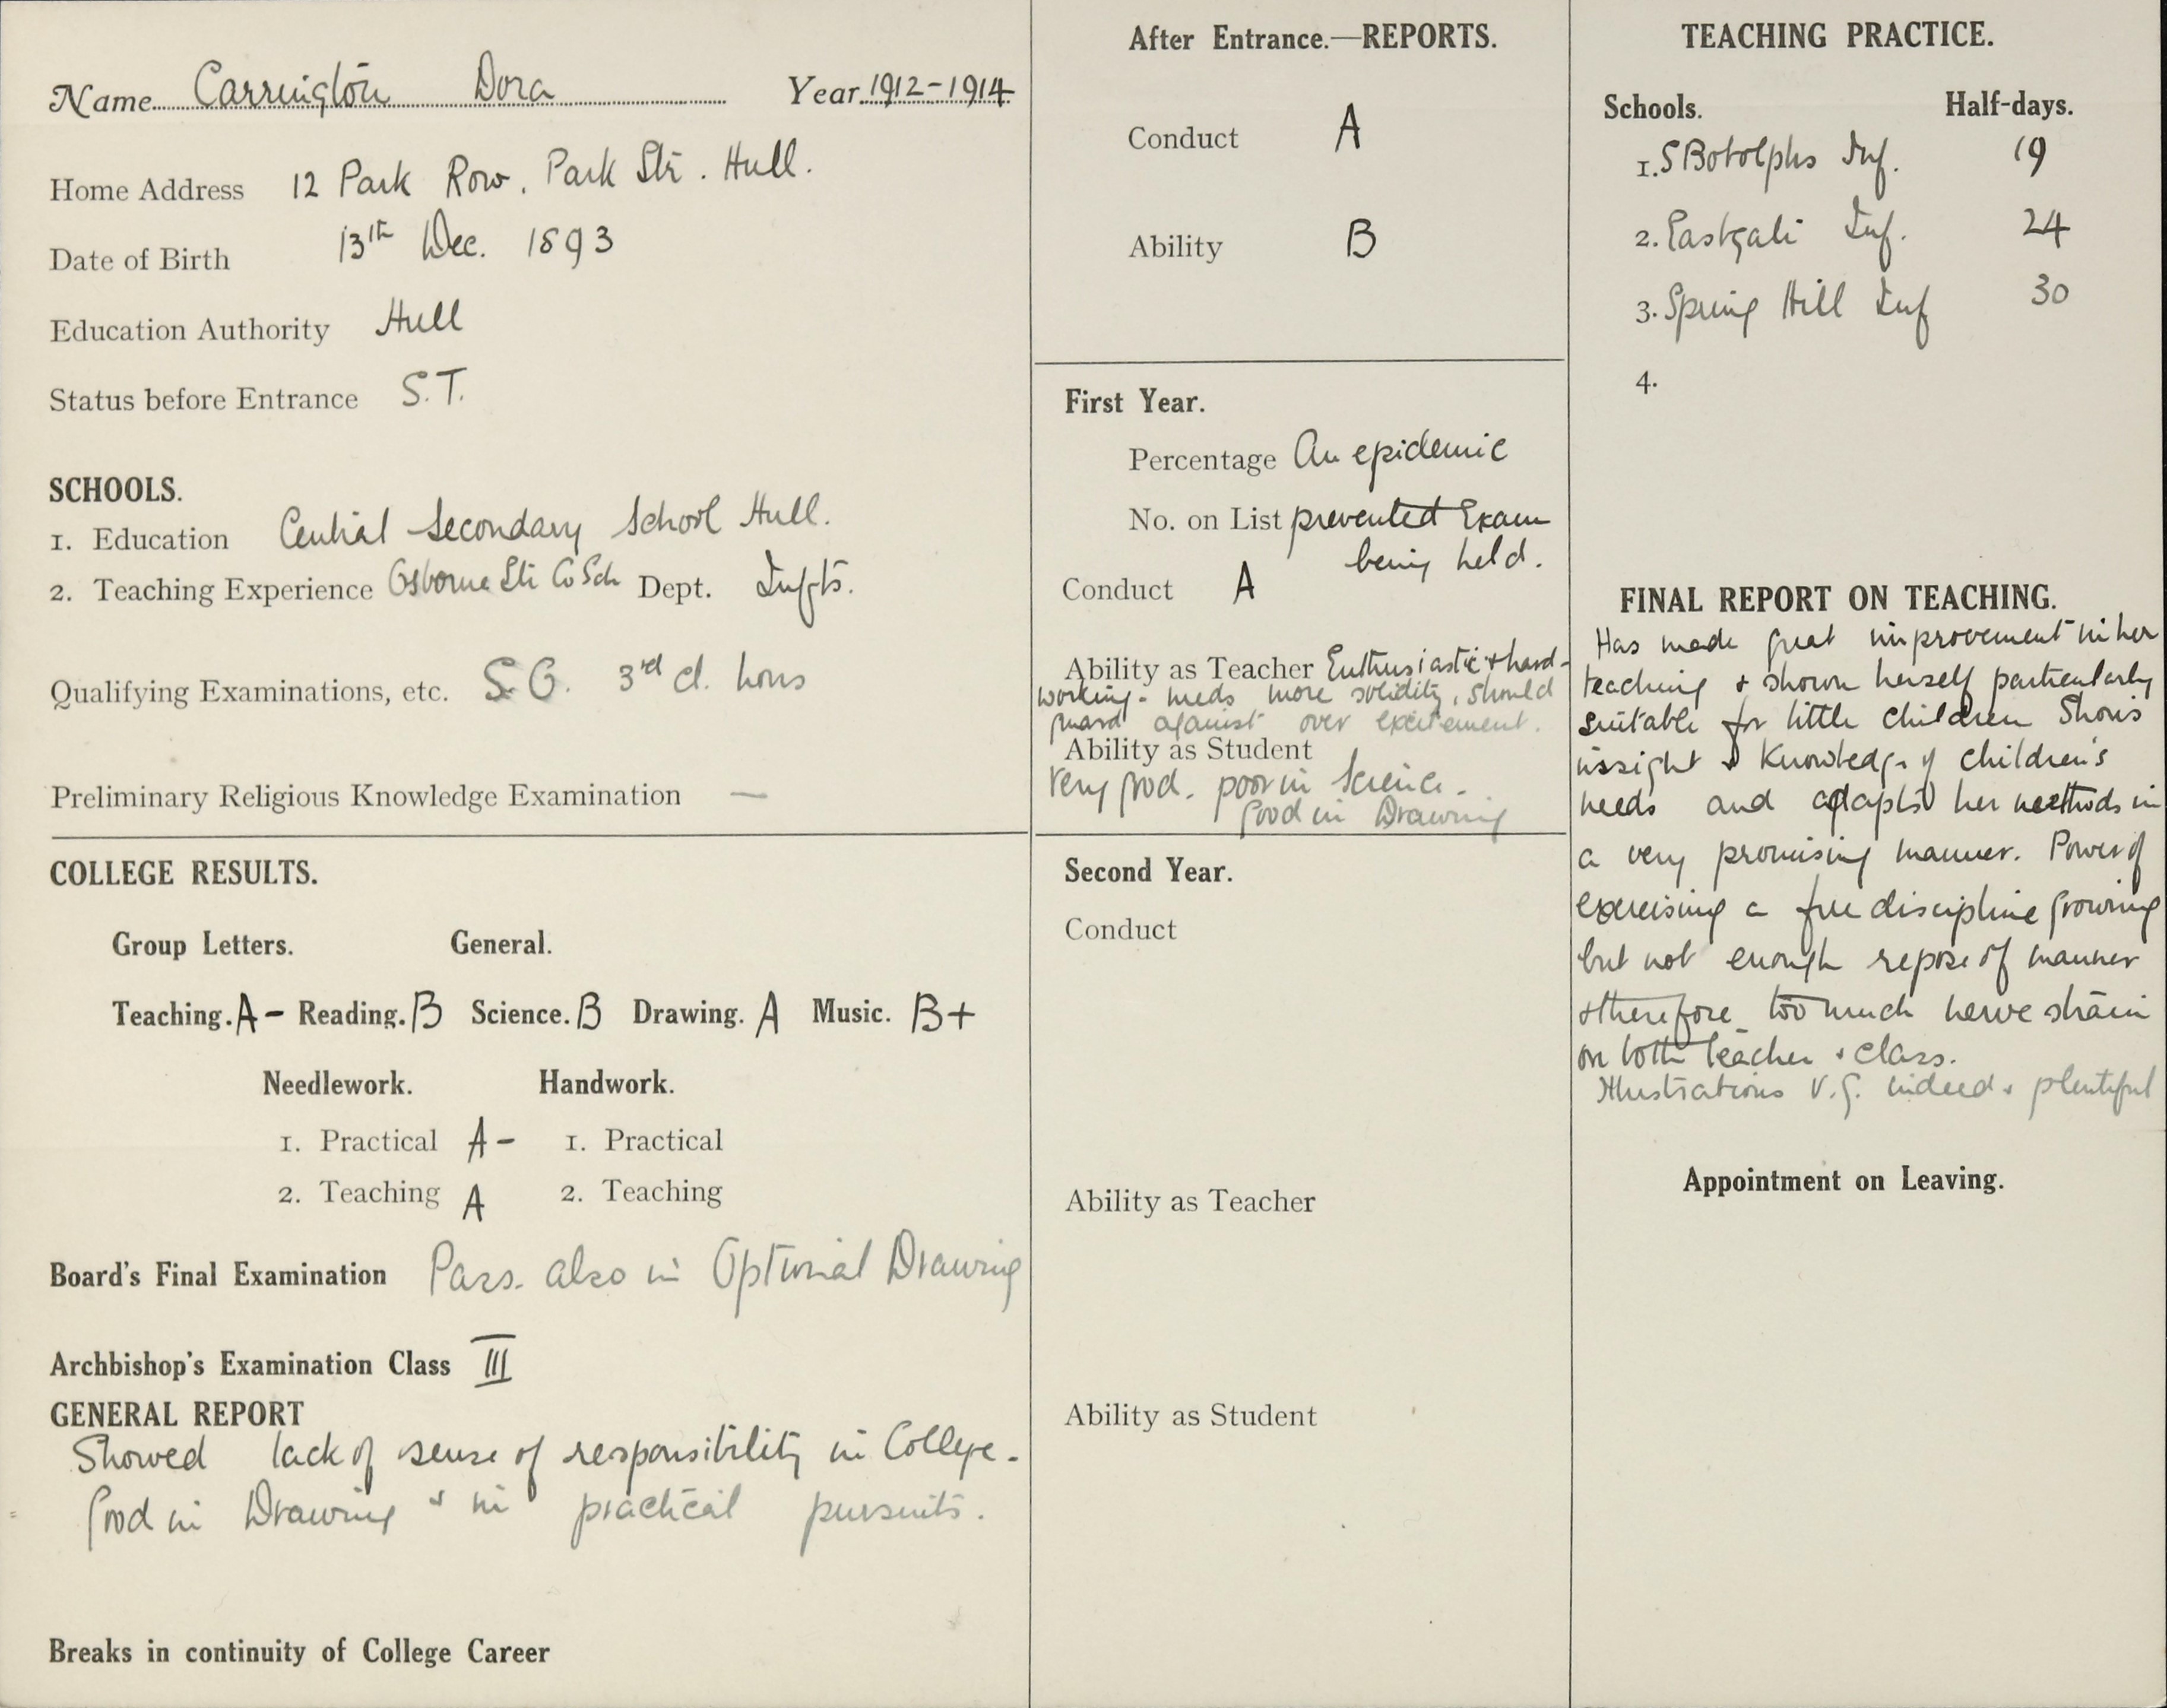 Name Carrington Dora Year 1912-1914
Home Address 12 Park Row. Park Str. Hull.
Date of Birth 13th Dec. 1893
Education Authority Hull
Status before Entrance S.T.
SCHOOLS.
1. Education Central Secondary School Hull.
2. Teaching Experience Osborne Str Co Sch Dept. Infts.
Qualifying Examinations, etc. S.C. 3rd cl. hons
Preliminary Religious Knowledge Examination —
COLLEGE RESULTS.
Group Letters. General.
Teaching. A- Reading. B Science. B Drawing. A Music. B+
Needlework. Handwork.
1. Practical A- 1. Practical
2. Teaching A 2. Teaching
Board's Final Examination Pass. also in Optional Drawing
Archbishop's Examination Class III
GENERAL REPORT
Showed lack of sense of responsibility in College.
Good in Drawing & in practical pursuits.
Breaks in continuity of College Career
After Entrance.—REPORTS.
Conduct A
Ability B
First Year.
Percentage An epidemic
No. on List prevented Exam
being held.
Conduct A
Ability as Teacher Enthusiastic & hard-
working. needs more solidity, should
guard against over excitement.
Ability as Student
Very good. poor in Science.
Good in Drawing
Second Year.
Conduct
Ability as Teacher
Ability as Student
TEACHING PRACTICE.
Schools. Half-days.
1. S Botolphs Inf. 19
2. Eastgate Inf. 24
3. Spring Hill Inf 30
4.
FINAL REPORT ON TEACHING.
Has made great improvement in her
teaching & shown herself particularly
suitable for little children Shows
insight & knowledge of children's
needs and adapts her methods in
a very promising manner. Power of
exercising a free discipline growing
but not enough repose of manner
& therefore too much nerve strain
on both teacher & class.
Illustrations V.G. indeed & plentiful
Appointment on Leaving.